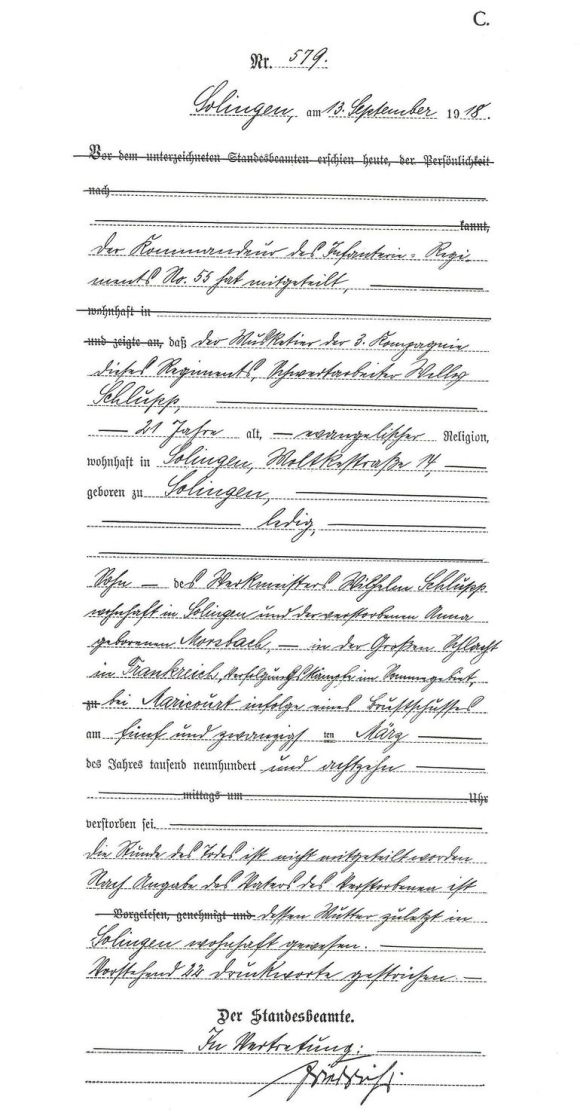 C.
Nr. 579.
Solingen, am 13. September 1918.
Vor dem unterzeichneten Standesbeamten erschien heute, der Persönlichkeit
nach
kannt,
Der Kommandeur des Infanterie-Regi-
ments No. 55 hat mitgeteilt,
wohnhaft in
und zeigte an, daß der Musketier der 3. Kompagnie
dieses Regiments, Schwertarbeiter Willy
Schlupp,
21 Jahre alt, evangelischer Religion,
wohnhaft in Solingen, Moltkestraße
geboren zu Solingen,
ledig,
Sohn des Werkmeisters Wilhelm Schlupp
wohnhaft in Solingen und der verstorbenen Anna
geborenen Morsbach, in der Großen Schlacht
in Frankreich, Verfolgungskämpfe im Sommegebiet,
zu bei Maricourt infolge eines Brustschusses
am fünf und zwanzigsten März
des Jahres tausend neunhundert und achtzehn
mittags um Uhr
verstorben sei.
Die Stunde des Todes ist nicht mitgeteilt worden
Nach Angabe des Vaters des Verstorbenen ist
Vorgelesen, genehmigt und dessen Mutter zuletzt in
Solingen wohnhaft gewesen.
Vorstehend 22 Druckworte gestrichen
Der Standesbeamte.
In Vertretung: